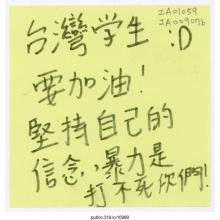 IA01059
IA009076
台灣学生 :D
要加油!
堅持自己的
信念,暴力是
打不死你們!
public.318.io/10989